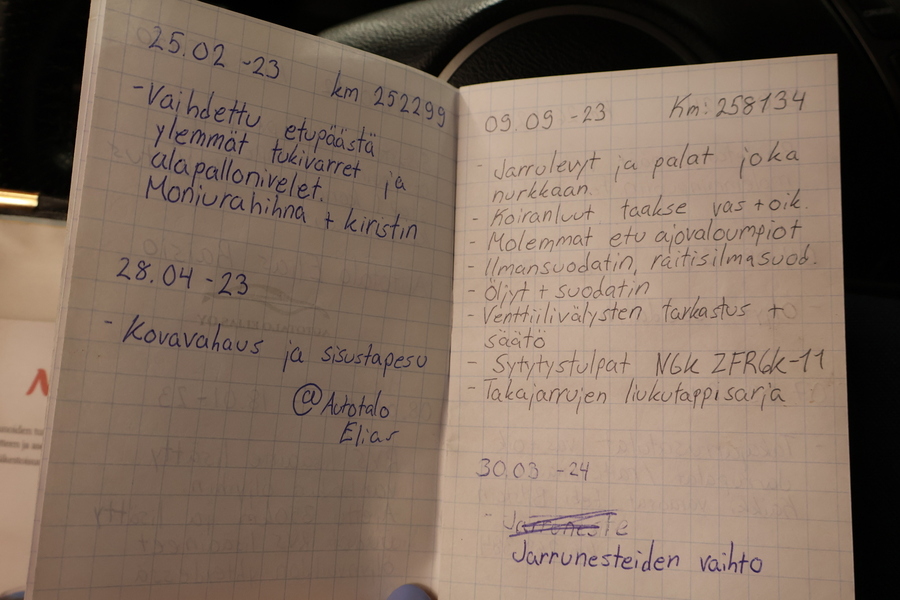 25.02 -23
km 252299
-Vaihdettu etupäästä
ylemmät tukivarret ja
alapallonivelet.
Moniurahihna + kiristin
28.04 -23
- Kovavahaus ja sisustapesu
@Autotalo
Elias
09.09 -23 Km: 258134
- Jarrulevyt ja palat joka
nurkkaan.
- Koiranluut taakse vas + oik.
- Molemmat etu ajovaloumpiot
- Ilmansuodatin, raitisilmasuod.
- Öljyt + suodatin
- Venttiilivälysten tarkastus +
säätö
- Sytytystulpat NGK ZFR6K-11
- Takajarrujen liukutappisarja
30.03 -24
-
Jarrunesteiden vaihto